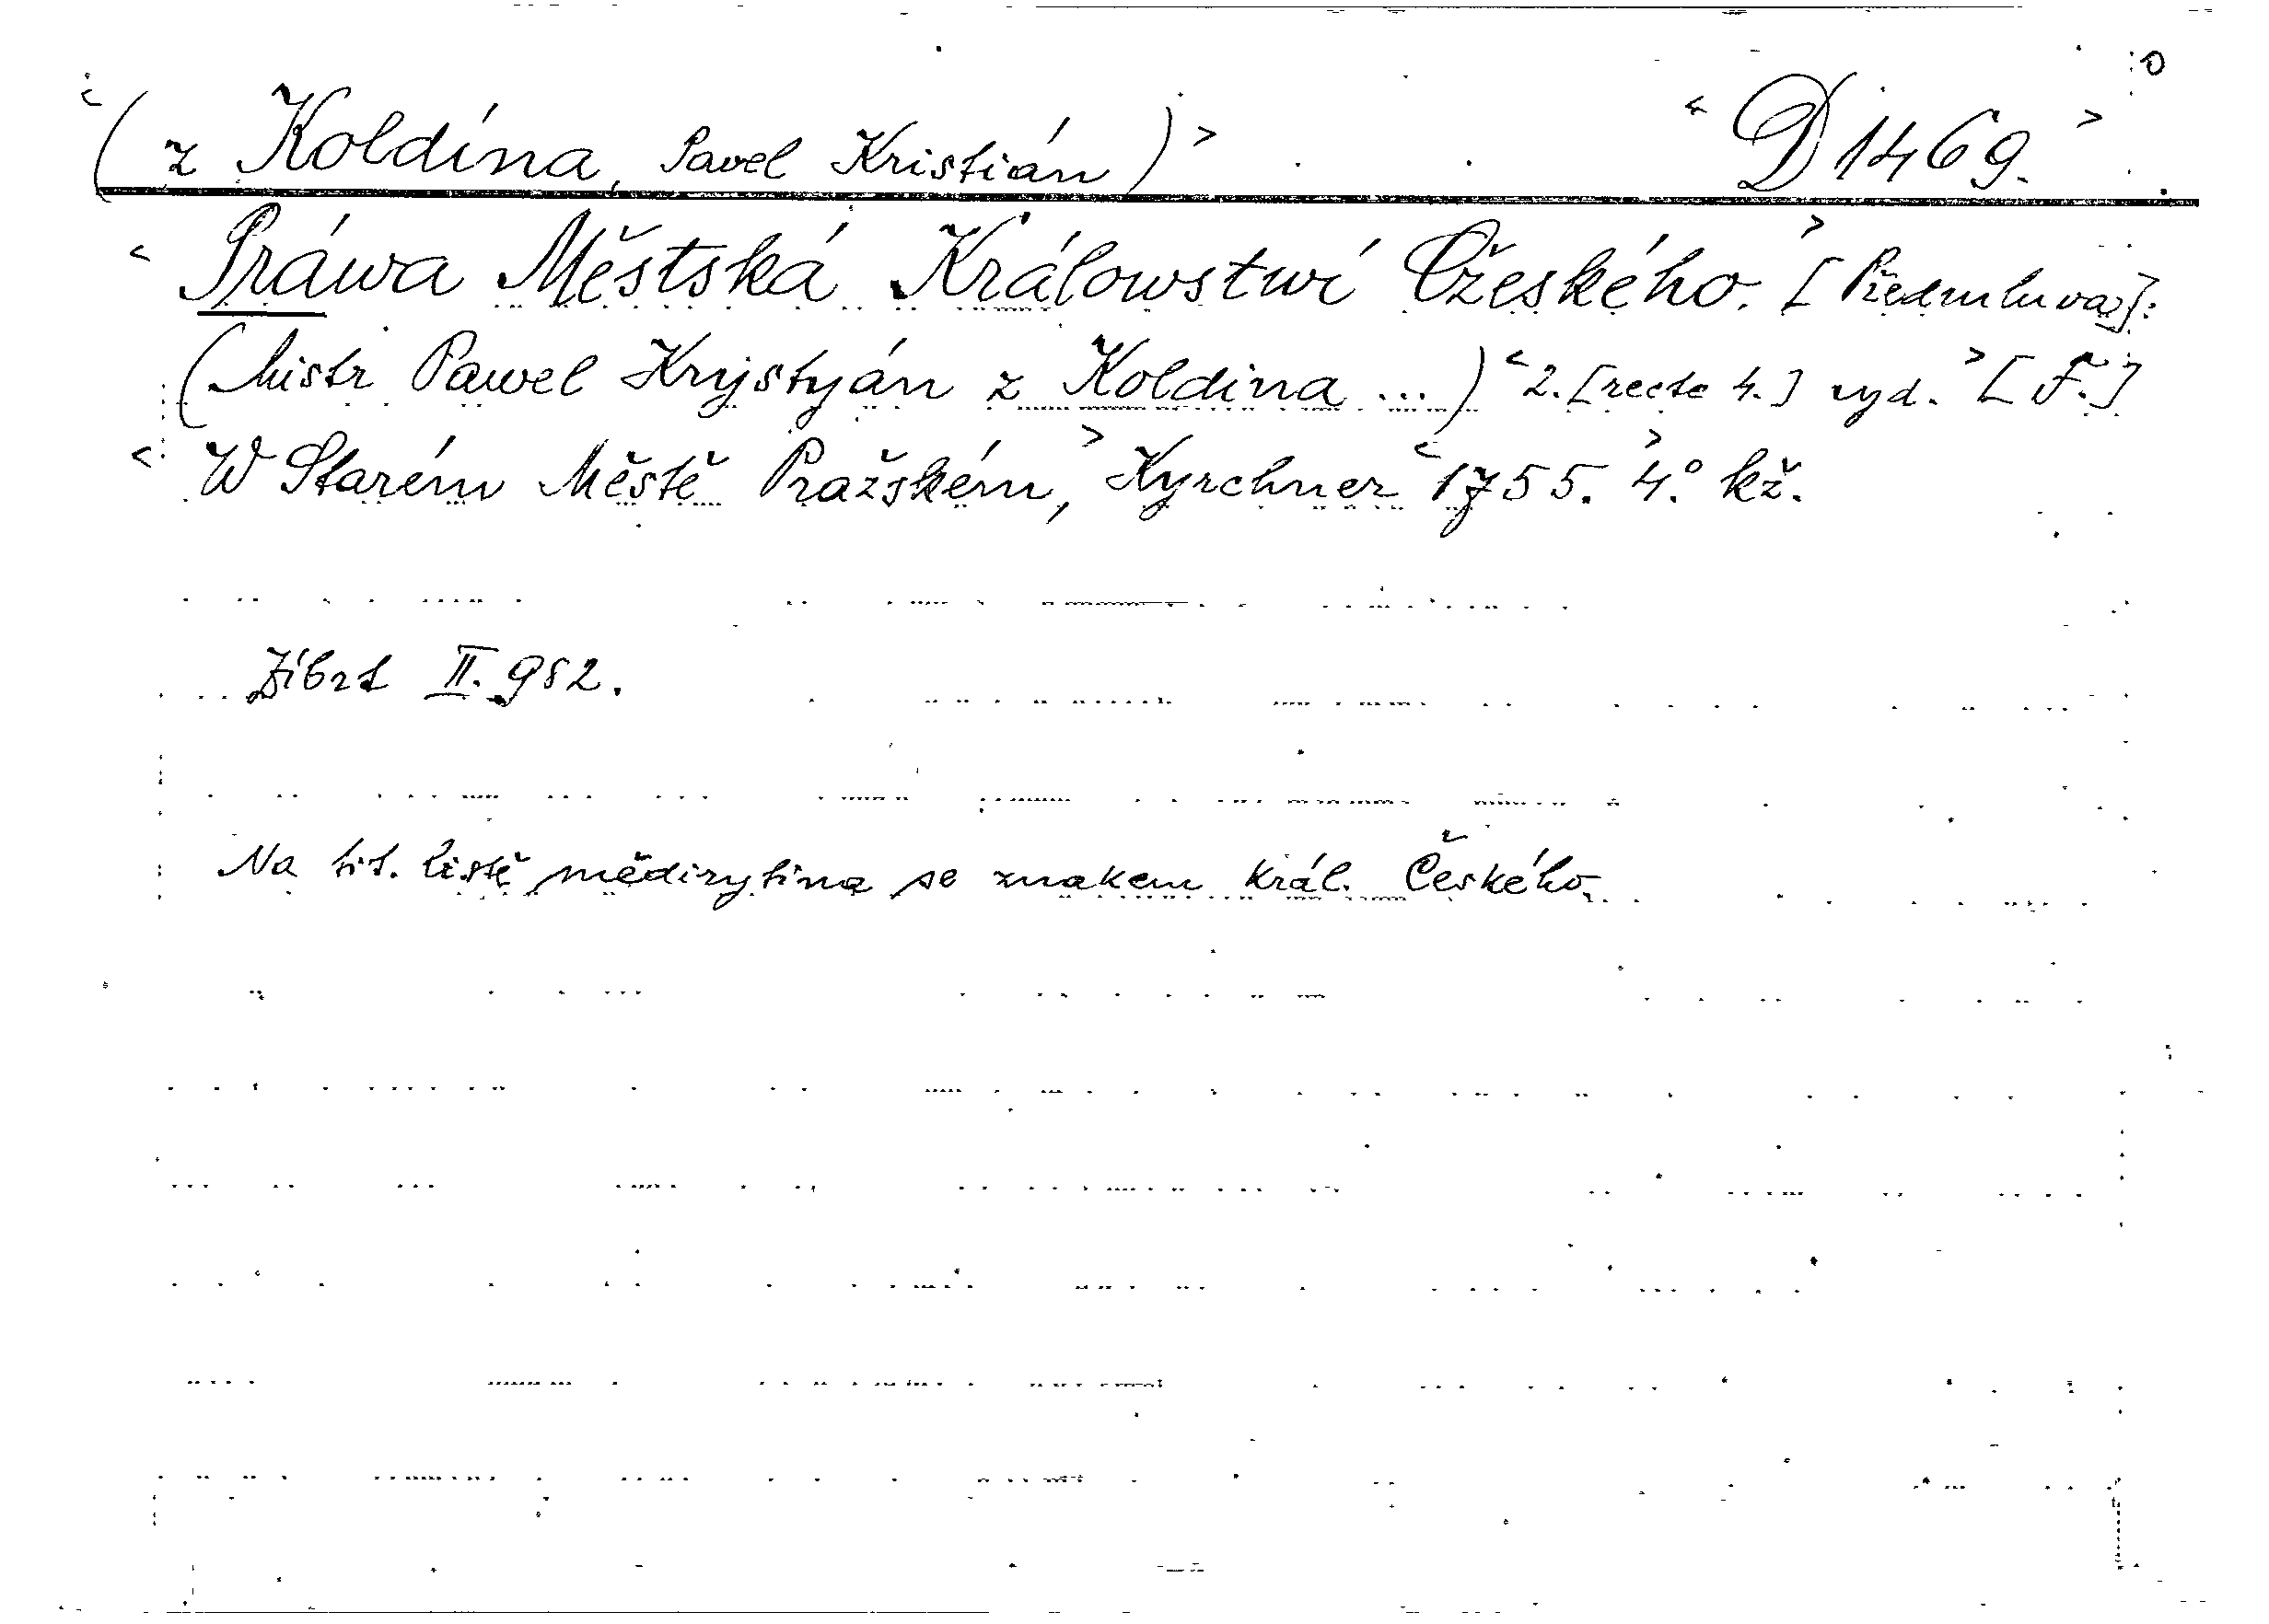 (z Koldína, Pavel Kristián) D 1469.
Práwa Městská Králowstwí Cžeského. [Předmluva]:
(Mistr Pawel Krystyán z Koldina ...) 2. [recte 4.] vyd. [F.]
W Starém Městě Pražském, Kyrchner 1755. 4.° kž.
Zíbrt II. 982.
Na tit. listě mědirytina se znakem král. Českého.